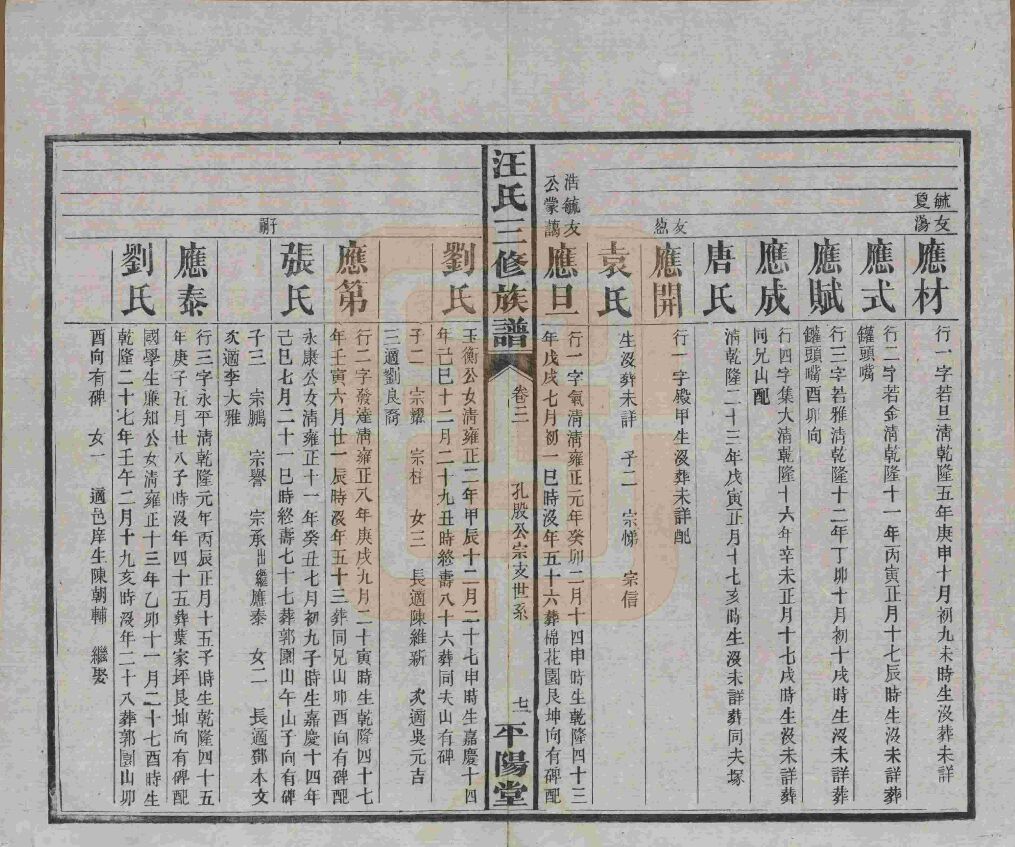 毓友
夏鴻
應材
行一字若旦淸乾隆五年庚申十月初九未時生沒葬未詳
應式
行二字若金淸乾隆十一年丙寅正月十七辰時生沒未詳葬
鑵頭嘴
應賦
行三字若雅淸乾隆十二年丁卯十月初十戌時生沒未詳葬
鑵頭嘴酉卯向
應成
行四字集大淸乾隆十六年辛未正月十七戌時生沒未詳葬
同兄山配
唐氏
淸乾隆二十三年戊寅正月十七亥時生沒未詳葬同夫塚
友
應開
行一字殿甲生沒葬未詳配
袁氏
生沒葬未詳 子二 宗悌 宗信
浩毓友
公蒙
應旦
行一字氣淸淸雍正元年癸卯二月十四申時生乾隆四十三
年戊戌七月初一巳時沒年五十六葬棉花園艮坤向有碑配
汪氏三修族譜
卷三
孔殷公宗支世系
平陽堂
劉氏
玉衡公女淸雍正二年甲辰十二月二十七申時生嘉慶十四
年己巳十二月二十九丑時終壽八十六葬同夫山有碑
子二 宗耀 宗柱 女三 長適陳維新 次適吳元吉
三適劉良裔
應第
行二字發達淸雍正八年庚戌九月二十寅時生乾隆四十七
年壬寅六月廿一辰時沒年五十三葬同兄山卯酉向有碑配
張氏
永康公女淸雍正十一年癸丑七月初九子時生嘉慶十四年
己巳七月二十一巳時終壽七十七葬郭園山午山子向有碑
子三 宗鵬 宗譽 宗承出繼應泰 女二 長適鄧本文
次適李大雅
應泰
行三字永平淸乾隆元年丙辰正月十五子時生乾隆四十五
年庚子五月廿八子時沒年四十五葬葉家坪艮坤向有碑配
劉氏
國學生廉知公女淸雍正十三年乙卯十一月二十七酉時生
乾隆二十七年壬午二月十九亥時沒年二十八葬郭園山卯
酉向有碑 女一 適邑庠生陳朝輔 繼娶